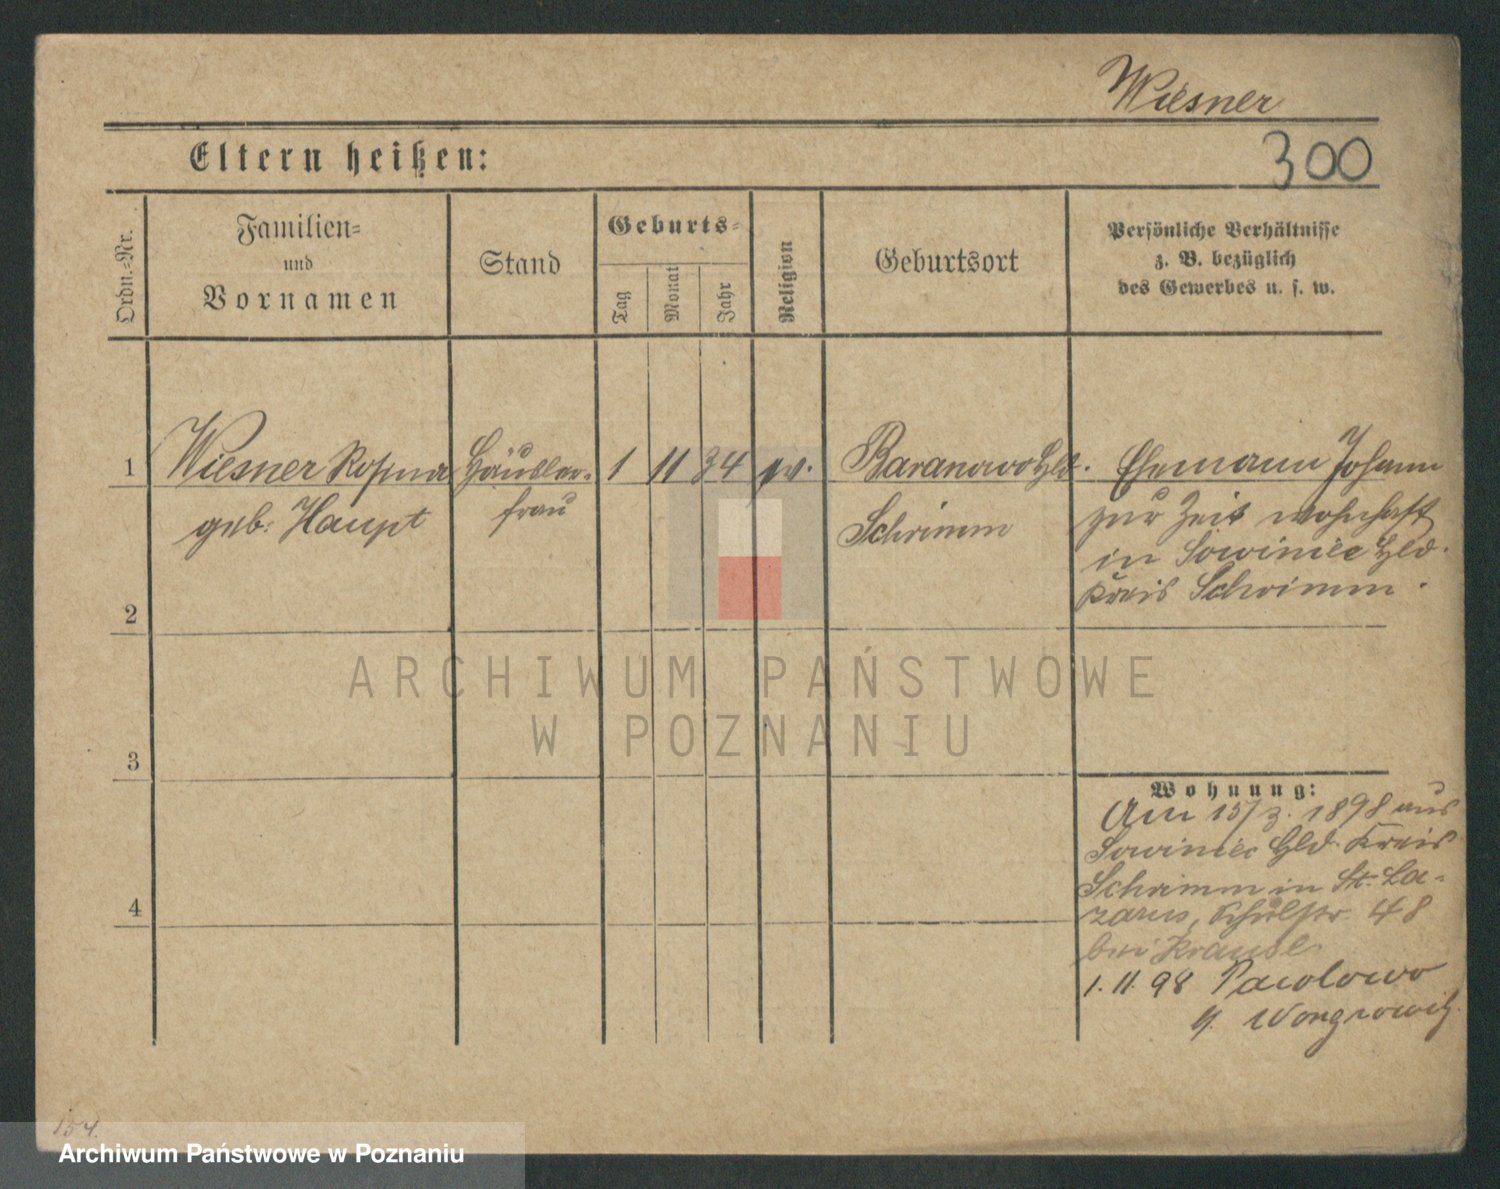 Wiesner
Eltern heißen:
300
Ordn.=Nr.
Familien=
und
Vornamen
Stand
Geburts=
Tag
Monat
Jahr
Religion
Geburtsort
Persönliche Verhältnisse
z. B. bezüglich
des Gewerbes u. s. w.
1
Wiesner Rosina
geb. Haupt
Häusler-
frau
1 11 34
Baranowo Hld.
Schrimm
Ehemann Johann
zur Zeit wohnhaft
in Sowiniec Hld.
Kreis Schrimm.
2
3
4
Wohnung:
Am 15/3. 1898 aus
Sowiniec Hld. Kreis
Schrimm in St. La-
zarus, Schulstr. 48
bei Krause
1. 11. 98
Wongrowitz
154.
ARCHIWUM PAŃSTWOWE
W POZNANIU
Archiwum Państwowe w Poznaniu